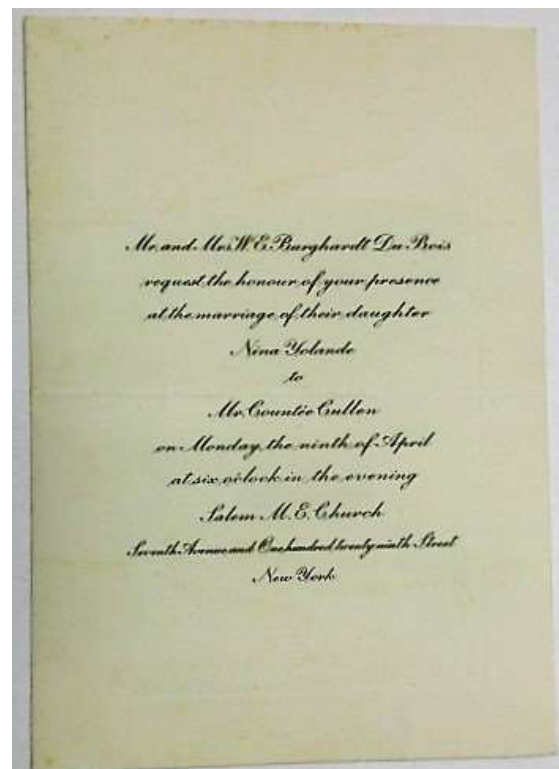 Mr. and Mrs. W. E. Burghardt Du Bois
request the honour of your presence
at the marriage of their daughter
Nina Yolande
to
Mr. Countée Cullen
on Monday, the ninth of April
at six o'clock in the evening
Salem M. E. Church
Seventh Avenue and One hundred twenty ninth Street
New York